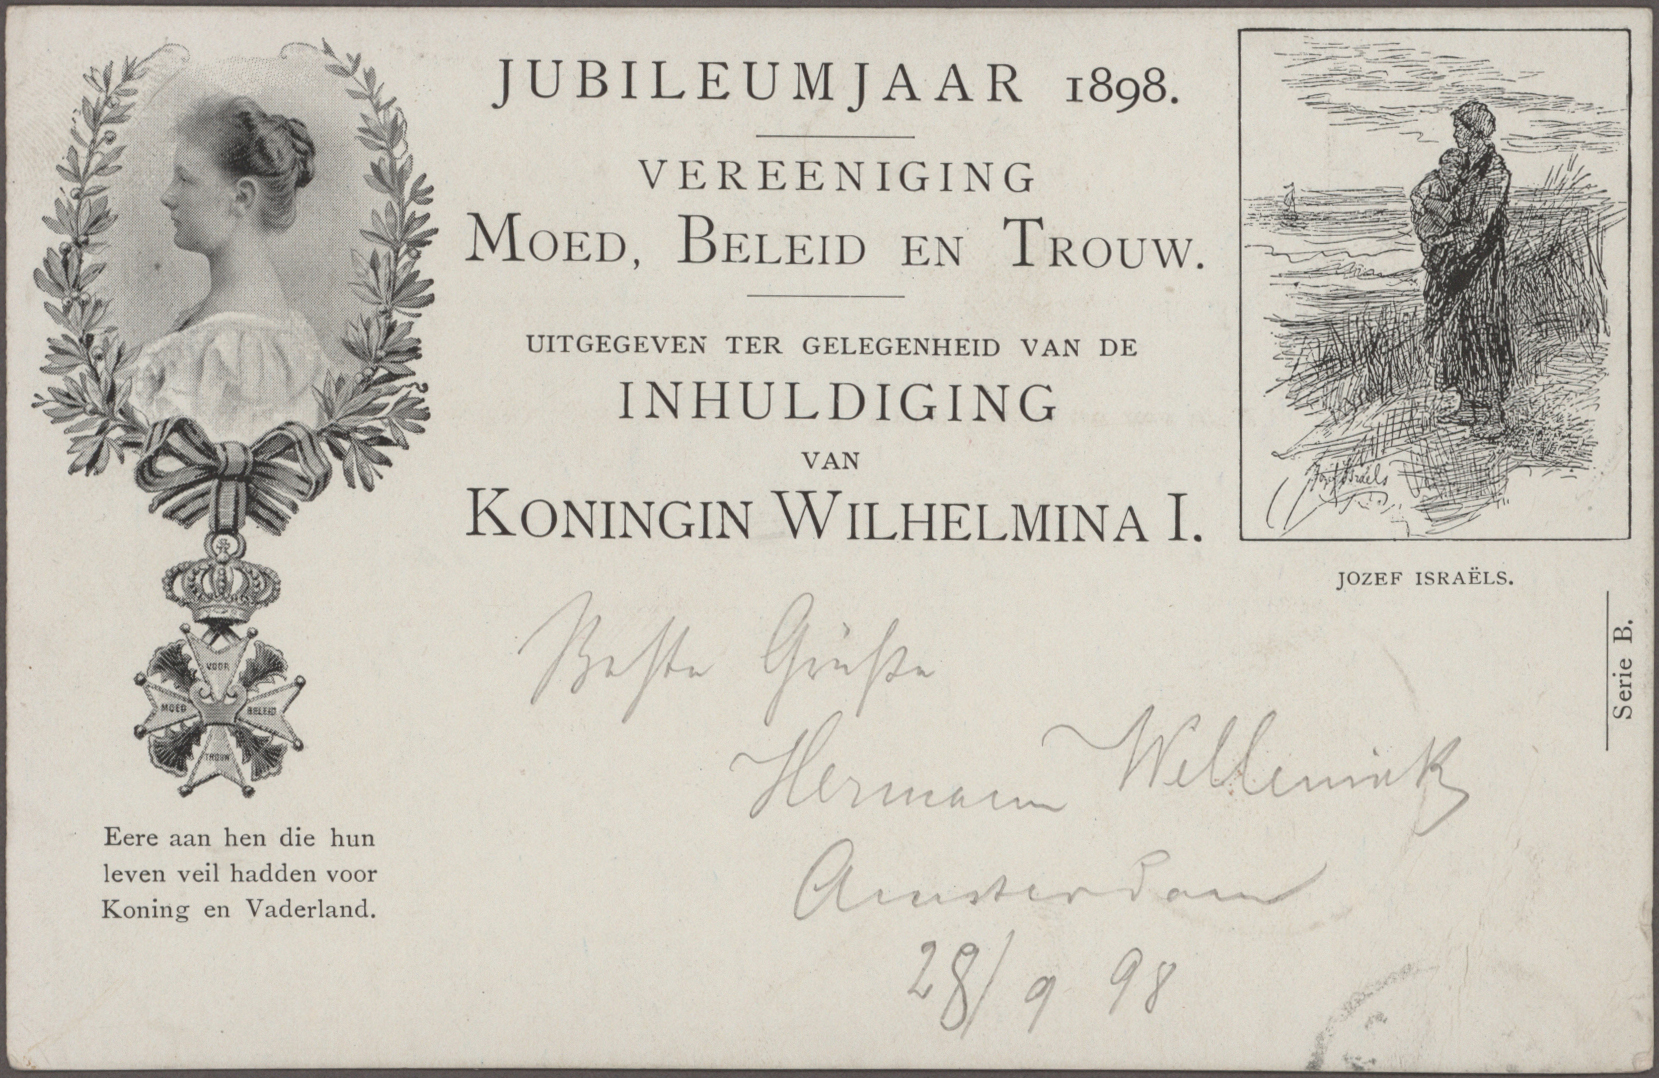 JUBILEUMJAAR 1898.
VEREENIGING
MOED, BELEID EN TROUW.
UITGEGEVEN TER GELEGENHEID VAN DE
INHULDIGING
VAN
KONINGIN WILHELMINA I.
VOOR
MOED BELEID
TROUW
Eere aan hen die hun
leven veil hadden voor
Koning en Vaderland.
Jozef Israëls
JOZEF ISRAËLS.
Serie B.
Beste Grüße
Hermann
Amsterdam
28/9 98